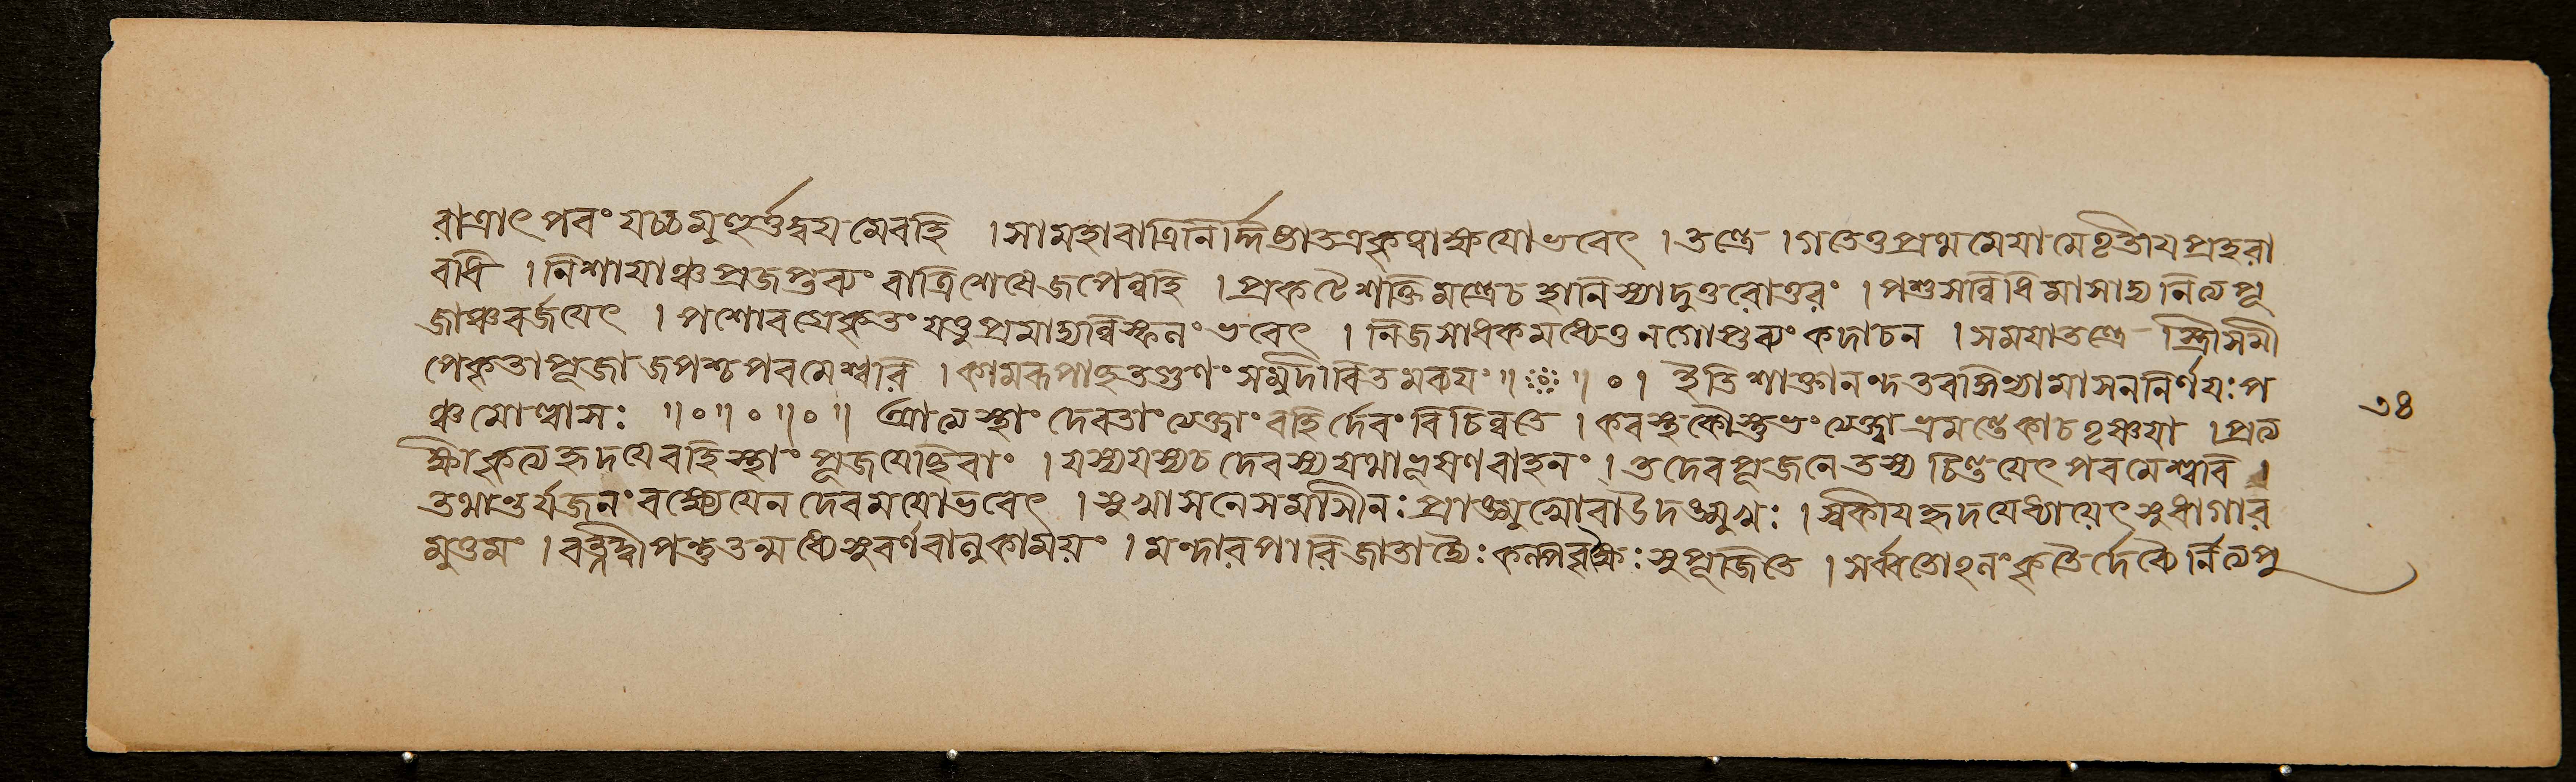 রাত্রাৎ পরং যচ্চ মুহূর্ত্তদ্বয় মেবহি । সা মহারাত্রি নির্দ্দিষ্টা তত্রকৃত্বাক্ষয়োভবেৎ । তন্ত্রে । গতেতু প্রথমেযামে তৃতীয়প্রহরা
বধি । নিশায়াঞ্চ প্রজপ্তব্যং রাত্রিশেষে জপেন্নহি । প্রকটে শক্তিমন্ত্রেচ হানিস্যাদুত্তরোত্তরং । পশুসন্নিধি মাসাদ্য নিত্যপূ
জাঞ্চবর্জয়েৎ । পশোরগ্রেকৃতং যত্তু প্রমাদান্নিস্ফলং ভবেৎ । নিজসাধকমধ্যেতু ন গোপ্তব্যং কদাচন । সময়াতন্ত্রে স্ত্রীসমী
পেকৃতাপূজা জপশ্চ পরমেশ্বরি । কামরূপাচ্ছতগুণং সমুদীরিতমব্যয়ং ॥ ॥ ० । ইতি শাক্তানন্দতরঙ্গিণ্যামাসননির্ণয়ঃ প
ঞ্চমোল্লাসঃ ॥०॥०॥०॥ আত্মস্থাং দেবতাং ত্যক্ত্বা বহির্দেবং বিচিন্বতে । করস্থকৌস্তুভং ত্যক্ত্বা ভ্রমন্তেকাচতৃষ্ণয়া । প্রত্য
ক্ষীকৃত্যহৃদয়ে বহিস্থাং পূজয়েচ্ছিবাং । যস্যযস্যচ দেবস্য যথাভূষণবাহনং । তদেব পূজনে তস্য চিন্তয়েৎ পরমেশ্বরি ।
তথান্তর্যজনং বক্ষ্যে যেন দেবময়োভবেৎ । সুখাসনেসমাসীনঃ প্রাঙ্মুখোবা উদঙ্মুখঃ । স্বকীয়হৃদয়েধ্যায়েৎ সুধাসাগর
মুত্তমং । রত্নদ্বীপন্তু তন্মধ্যে সুবর্ণবালুকাময়ং । মন্দারপারিজাতাদ্যৈঃ কল্পবৃক্ষৈঃ সুপূজিতে । সর্ব্বতোঽলংকৃতৈর্দেব্যৈর্নিত্যপু
৩৪